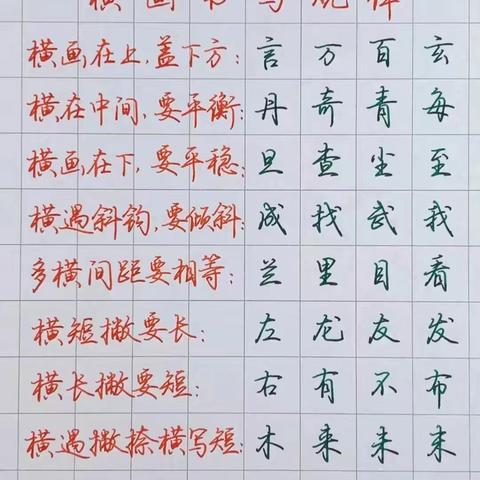 横画书写规律
横画在上,盖下方: 言 万 百 玄
横在中间,要平衡: 丹 奇 青 每
横画在下,要平稳: 旦 查 尘 至
横遇斜钩,要倾斜: 成 找 武 我
多横间距要相等: 兰 里 目 看
横短撇要长: 左 龙 友 发
横长撇要短: 右 有 不 布
横遇撇捺横写短: 木 来 未 末